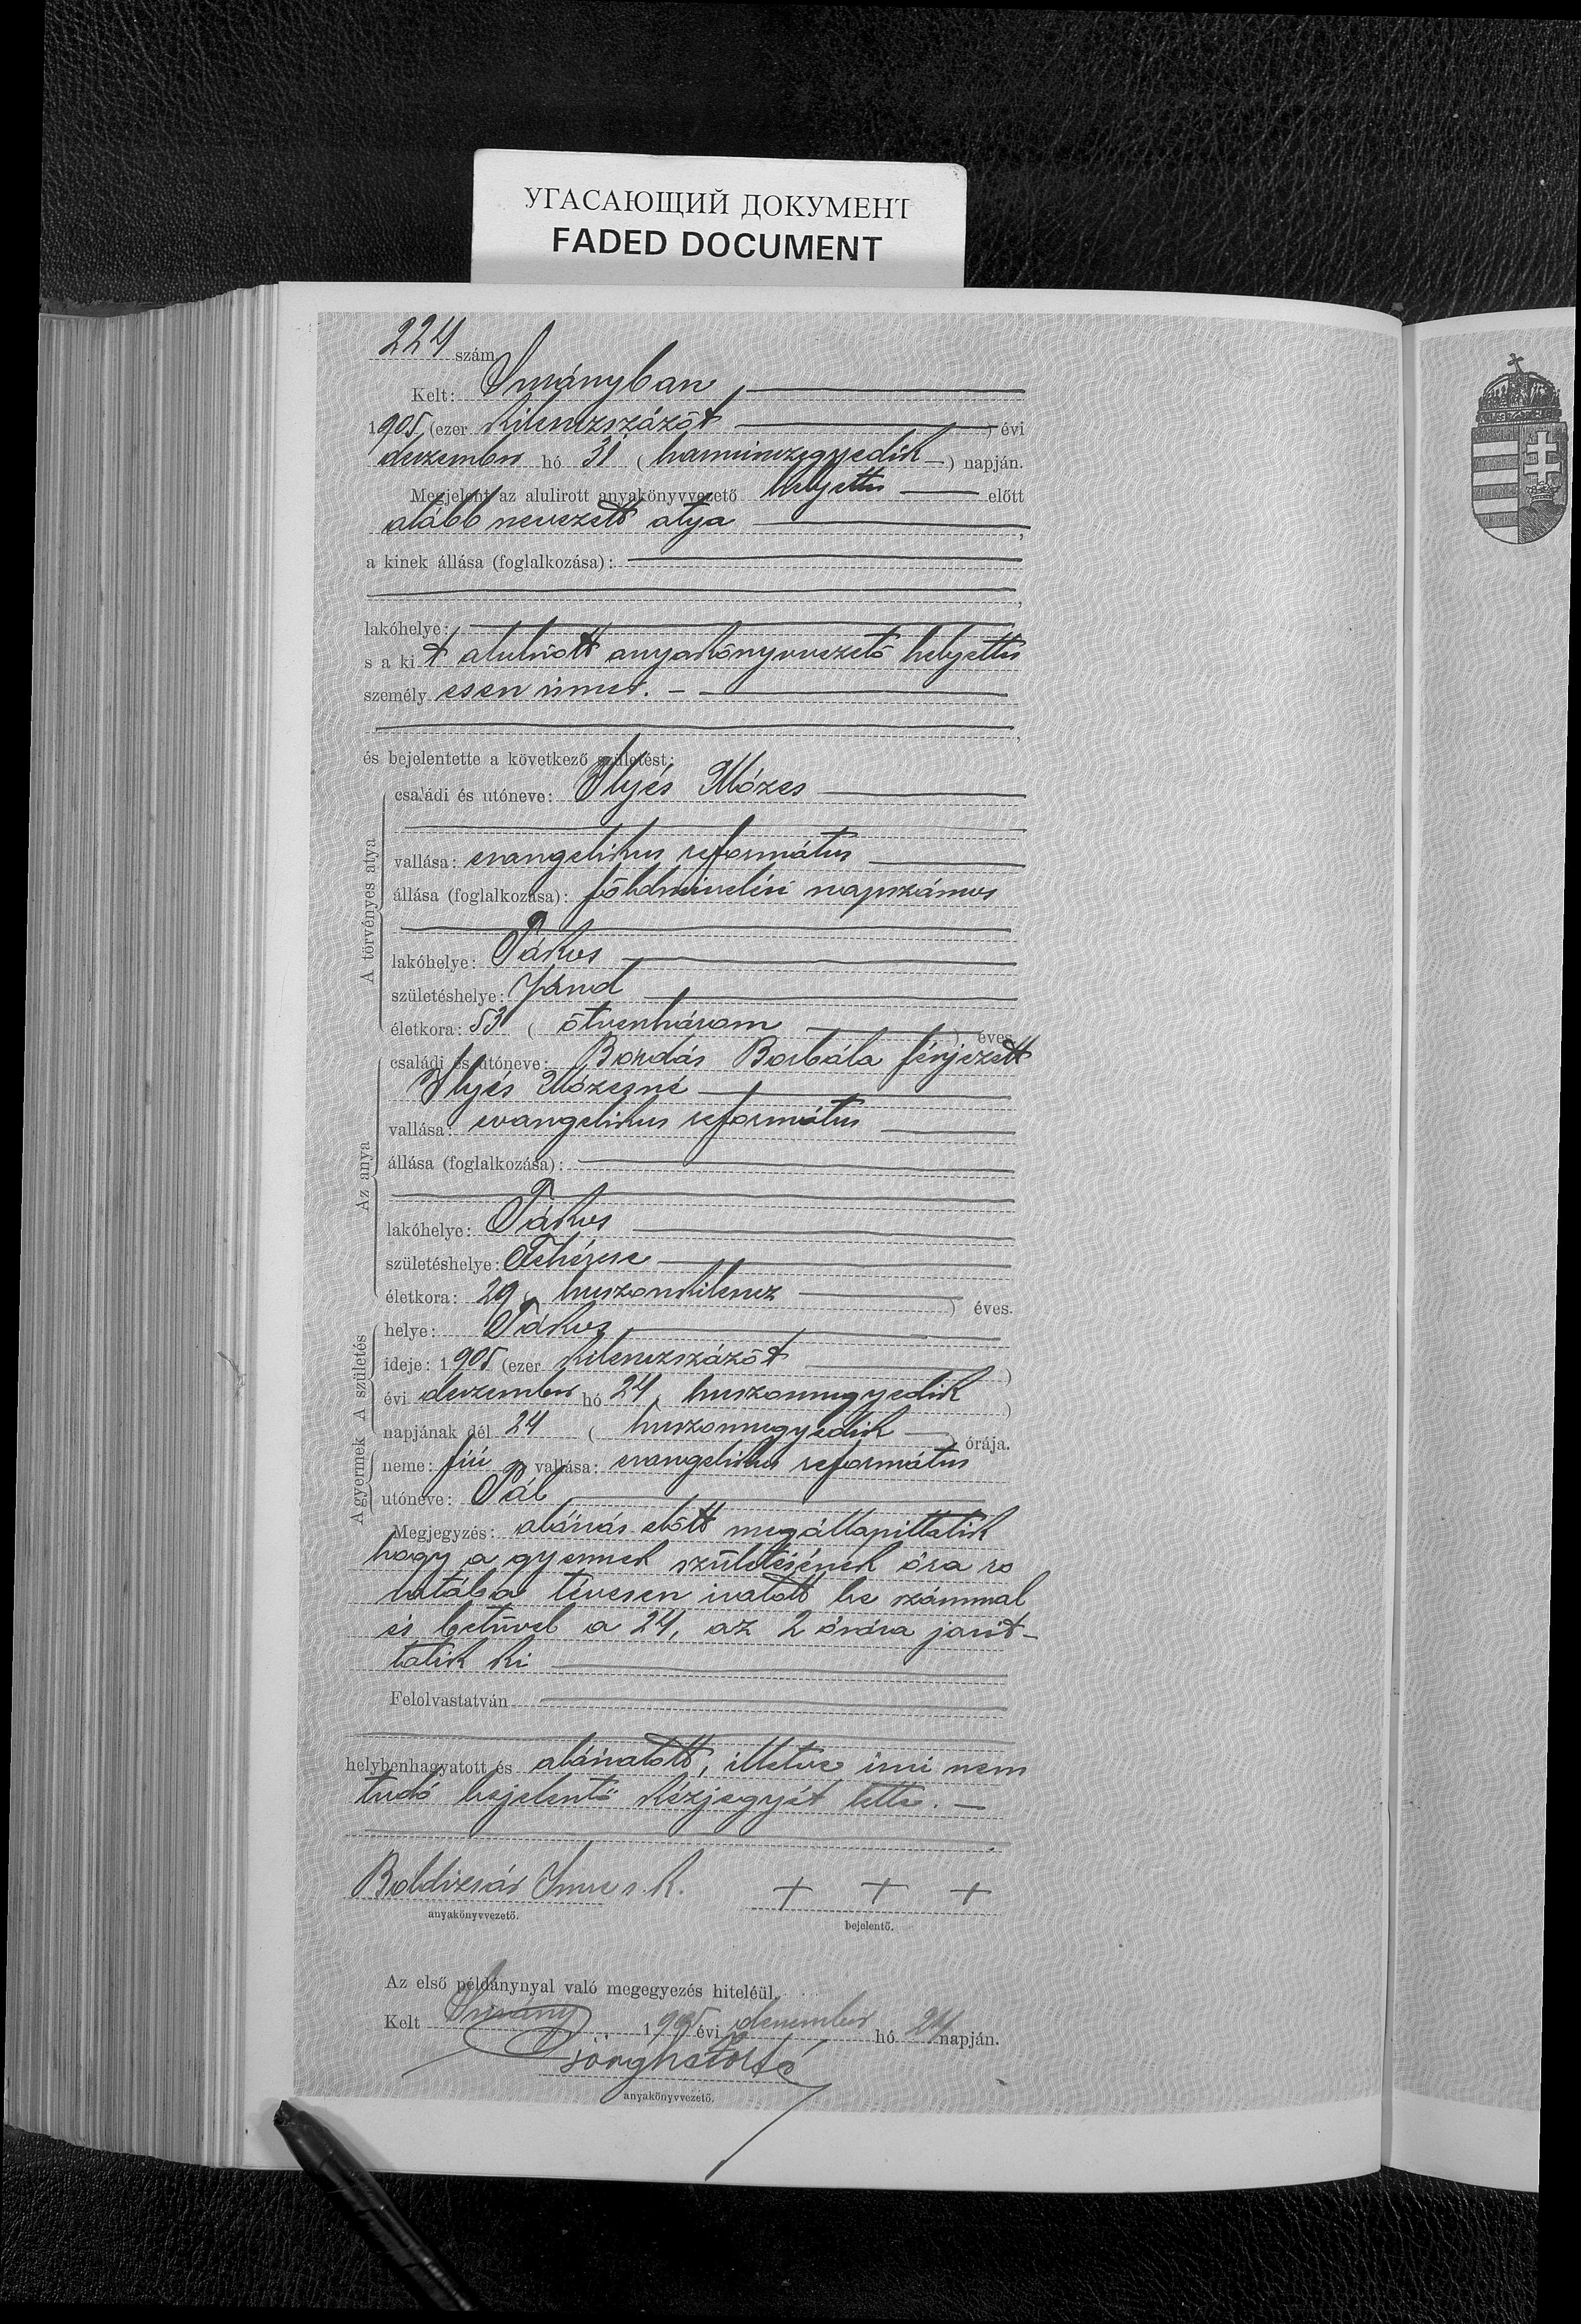 УГАСАЮЩИЙ ДОКУМЕНТ
FADED DOCUMENT
224 szám.
Kelt: Surányban
1905 (ezer kilenczszázöt) évi
deczember hó 31 (harminczegyedik) napján.
Megjelent az alulirott anyakönyvvezető helyettes előtt
alább nevezett atya,
a kinek állása (foglalkozása):
lakóhelye:
s a kit alulirott anyakönyvvezető helyettes
személyesen ismer. –
és bejelentette a következő születést:
A törvényes atya
családi és utóneve: Illyés Mózes
vallása: evangelikus református
állása (foglalkozása): földmivelési napszámos
lakóhelye: Tákos
születéshelye: Jánd
életkora: 53 (ötvenhárom) éves.
Az anya
családi és utóneve: Bordás Borbála férjezett
Illyés Mózesné
vallása: evangelikus református
állása (foglalkozása):
lakóhelye: Tákos
születéshelye: Fehérse
életkora: 29 (huszonkilencz) éves.
A születés
helye: Tákos
ideje: 1905 (ezer kilenczszázöt)
évi deczember hó 24 (huszonnegyedik)
napjának dél 24 (huszonnegyedik) órája.
A gyermek
neme: fiú vallása: evangelikus református
utóneve: Pál
Megjegyzés: aláirás előtt megállapittatik
hogy a gyermek születésének óra ro
vatába tévesen iratott be számmal
és betüvel a 24, az 2 órára javit-
tatik ki
Felolvastatván
helybenhagyatott és aláiratott, illetve irni nem
tudó bejelentő kézjegyét tette. –
Boldizsár Imre s. k. + + +
anyakönyvvezető. bejelentő.
Az első példánynyal való megegyezés hiteléül.
Kelt Surány 1905 évi deczember hó 24 napján.
anyakönyvvezető.